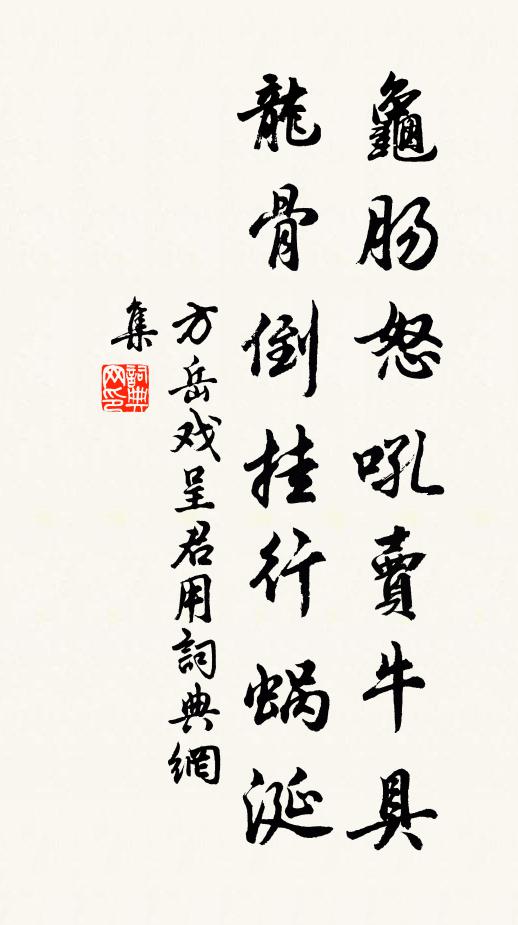 龜肠怒吼賣牛具
龍骨倒挂行蜗涎
方岳戏呈君用詞典網
集
詞典
网印